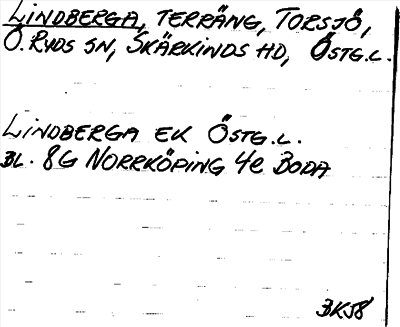 LINDBERGA, TERRÄNG, TORSJÖ,
Ö. RYDS SN, SKÄRKINDS HD, ÖSTG.L.
LINDBERGA EK ÖSTG.L.
BL. 8G NORRKÖPING 4e BODA